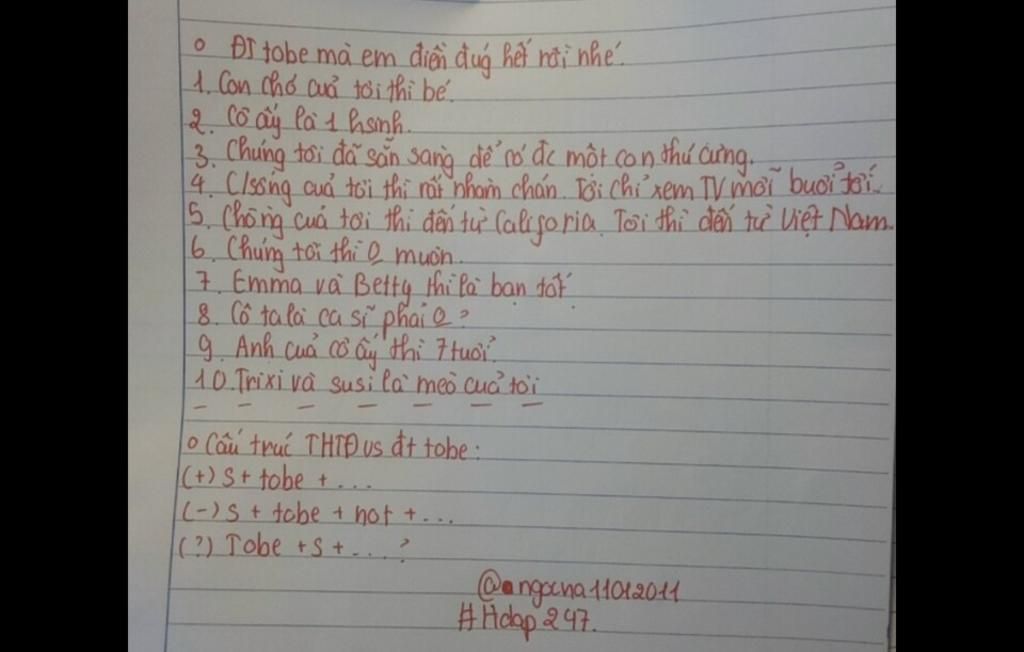 o ĐT tobe mà em điền đug hết rồi nhé.
1. Con chó của tôi thì bé.
2. Cô ấy là 1 hsinh.
3. Chúng tôi đã sẵn sang để có đc một con thú cưng.
4. C/sống của tôi thì rất nhàm chán. Tôi chỉ xem TV mỗi buổi tối.
5. Chồng của tôi thì đến từ Califoria. Tôi thì đến từ Việt Nam.
6. Chúng tôi thì O muộn.
7. Emma và Betty thì là bạn tốt
8. Cô ta là ca sĩ phải O?
9. Anh của cô ấy thì 7 tuổi.
10. Trixi và susi là mèo của tôi
o Cấu trúc THTĐ vs đt tobe:
(+) S + tobe + ...
(-) S + tobe + not + ...
(?) Tobe + S + ... ?
@ngocna11012011
#Hdap 247.